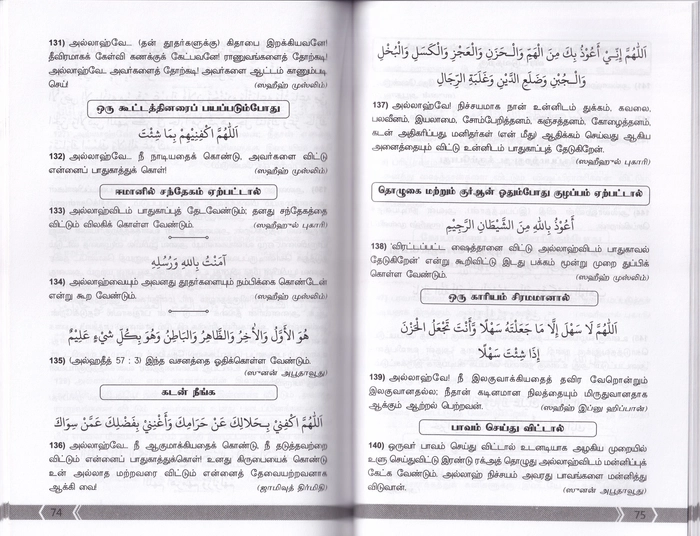 131) அல்லாஹ்வே.. (தன் தூதர்களுக்கு) கிதாபை இறக்கியவனே!
தீவிரமாகக் கேள்வி கணக்குக் கேட்பவனே! ராணுவங்களைத் தோற்கடி!
அல்லாஹ்வே.. அவர்களைத் தோற்கடி! அவர்களை ஆட்டம் காணும்படி
செய்! (ஸஹீஹ் முஸ்லிம்)
ஒரு கூட்டத்தினரைப் பயப்படும்போது
اَللّٰهُمَّ اكْفِنِيْهِمْ بِمَا شِئْتَ
132) அல்லாஹ்வே.. நீ நாடியதைக் கொண்டு, அவர்களை விட்டு
என்னைப் பாதுகாத்துக் கொள்! (ஸஹீஹ் முஸ்லிம்)
ஈமானில் சந்தேகம் ஏற்பட்டால்
133) அல்லாஹ்விடம் பாதுகாப்புத் தேடவேண்டும்; தனது சந்தேகத்தை
விட்டும் விலகிக் கொள்ள வேண்டும். (ஸஹீஹுல் புகாரி)
آمَنْتُ بِاللّٰهِ وَرُسُلِهِ
134) அல்லாஹ்வையும் அவனது தூதர்களையும் நம்பிக்கை கொண்டேன்
என்று கூற வேண்டும். (ஸஹீஹ் முஸ்லிம்)
هُوَ الْأَوَّلُ وَالْآخِرُ وَالظَّاهِرُ وَالْبَاطِنُ وَهُوَ بِكُلِّ شَيْءٍ عَلِيْمٌ
135) (அல்ஹதீத் 57 : 3) இந்த வசனத்தை ஓதிக்கொள்ள வேண்டும்.
(ஸுனன் அபூதாவூது)
கடன் நீங்க
اَللّٰهُمَّ اكْفِنِيْ بِحَلَالِكَ عَنْ حَرَامِكَ وَأَغْنِنِيْ بِفَضْلِكَ عَمَّنْ سِوَاكَ
136) அல்லாஹ்வே.. நீ ஆகுமாக்கியதைக் கொண்டு, நீ தடுத்தவற்றை
விட்டும் என்னைப் பாதுகாத்துக்கொள்! உனது கிருபையைக் கொண்டு
உன் அல்லாத மற்றவரை விட்டும் என்னைத் தேவையற்றவனாக
ஆக்கி வை! (ஜாமிவுத் திர்மிதி)
74
اَللّٰهُمَّ إِنِّيْ أَعُوْذُ بِكَ مِنَ الْهَمِّ وَالْحَزَنِ وَالْعَجْزِ وَالْكَسَلِ وَالْبُخْلِ
وَالْجُبْنِ وَضَلَعِ الدَّيْنِ وَغَلَبَةِ الرِّجَالِ
137) அல்லாஹ்வே! நிச்சயமாக நான் உன்னிடம் துக்கம், கவலை,
பலவீனம், இயலாமை, சோம்பேறித்தனம், கஞ்சத்தனம், கோழைத்தனம்,
கடன் அதிகரிப்பது, மனிதர்கள் (என் மீது) ஆதிக்கம் செய்வது ஆகிய
அனைத்தையும் விட்டு உன்னிடம் பாதுகாப்புத் தேடுகிறேன்.
(ஸஹீஹுல் புகாரி)
தொழுகை மற்றும் குர்ஆன் ஓதும்போது குழப்பம் ஏற்பட்டால்
أَعُوْذُ بِاللّٰهِ مِنَ الشَّيْطَانِ الرَّجِيْمِ
138) 'விரட்டப்பட்ட ஷைத்தானை விட்டு அல்லாஹ்விடம் பாதுகாவல்
தேடுகிறேன்' என்று கூறிவிட்டு இடது பக்கம் மூன்று முறை துப்பிக்
கொள்ள வேண்டும். (ஸஹீஹ் முஸ்லிம்)
ஒரு காரியம் சிரமமானால்
اَللّٰهُمَّ لَا سَهْلَ إِلَّا مَا جَعَلْتَهُ سَهْلًا وَأَنْتَ تَجْعَلُ الْحَزْنَ
إِذَا شِئْتَ سَهْلًا
139) அல்லாஹ்வே! நீ இலகுவாக்கியதைத் தவிர வேறொன்றும்
இலகுவானதல்ல; நீதான் கடினமான நிலத்தையும் மிருதுவானதாக
ஆக்கும் ஆற்றல் பெற்றவன். (ஸஹீஹ் இப்னு ஹிப்பான்)
பாவம் செய்து விட்டால்
140) ஒருவர் பாவம் செய்து விட்டால் உடனடியாக அழகிய முறையில்
உளு செய்துவிட்டு இரண்டு ரக்அத் தொழுது அல்லாஹ்விடம் மன்னிப்புக்
கேட்க வேண்டும். அல்லாஹ் நிச்சயம் அவரது பாவங்களை மன்னித்து
விடுவான். (ஸுனன் அபூதாவூது)
75